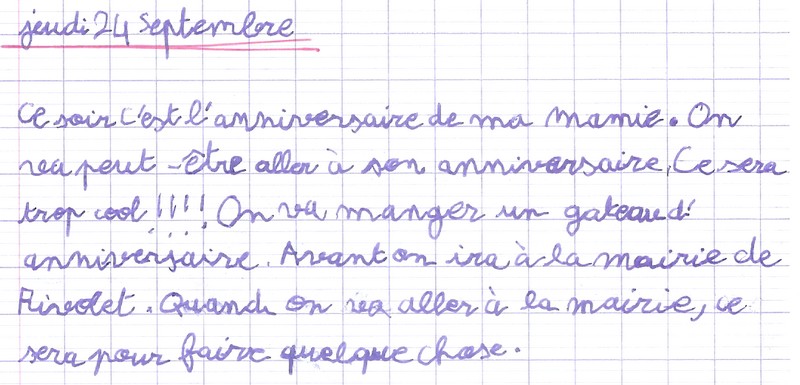 jeudi 24 Septembre
Ce soir c'est l'anniversaire de ma mamie. On
va peut-être aller à son anniversaire. Ce sera
trop cool !!!! On va manger un gateau d'
anniversaire. Avant on ira à la mairie de
Rivolet. Quand on va aller à la mairie, ce
sera pour faire quelque chose.